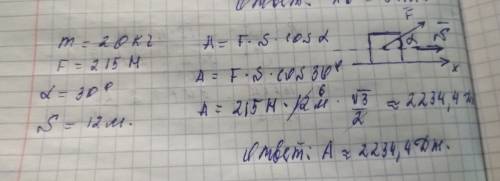 m = 20 кг
F = 215 Н
α = 30°
S = 12 м.
A = F · S · cos α
A = F · S · cos 30°
A = 215 Н · 12 м · √3/2 ≈ 2234,4 Дж
6
Ответ: A ≈ 2234,4 Дж.
F α S
x